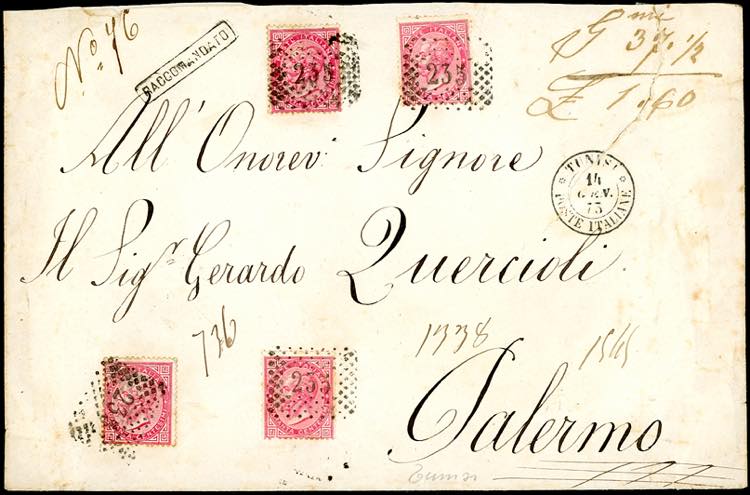 Nº. 76
RACCOMANDATO
235
235
Gmi 37. 1/2
£ 1.60
All' Onorev: Signore
TUNISI
14
GEN.
75
POSTE ITALIANE
Il Sigr Gerardo Quercioli
726
1338
1565
235
235
Palermo
Tunisi